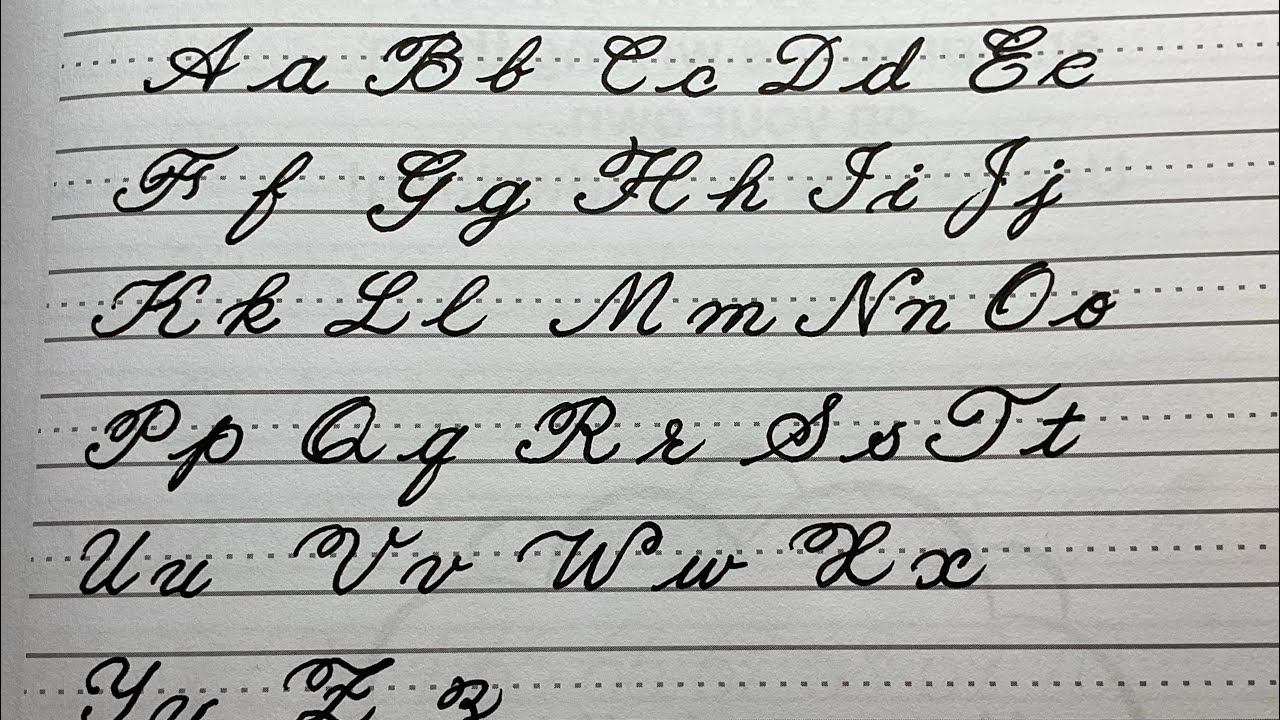 A a B b C c D d E e
F f G g H h I i J j
K k L l M m N n O o
P p Q q R r S s T t
U u V v W w X x
Y y Z z